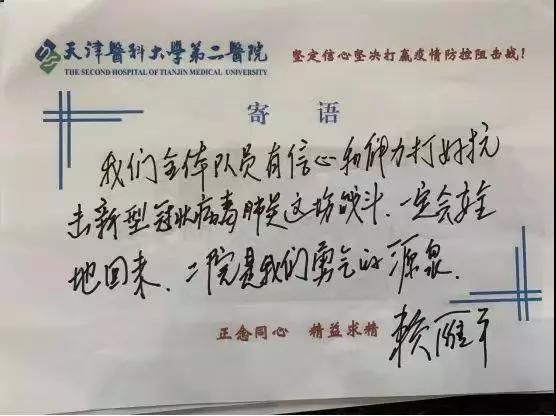 天津醫科大學第二醫院
THE SECOND HOSPITAL OF TIANJIN MEDICAL UNIVERSITY
坚定信心坚决打赢疫情防控阻击战!
寄 语
我们全体队员有信心和能力打好抗
击新型冠状病毒肺炎这场战斗.一定会安全
地回来.二院是我们勇气的源泉.
正念同心 精益求精
赖雅平